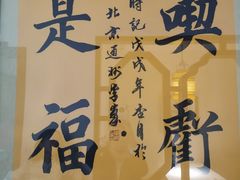 喫虧
是福
時記戊戌年月於
北京通州